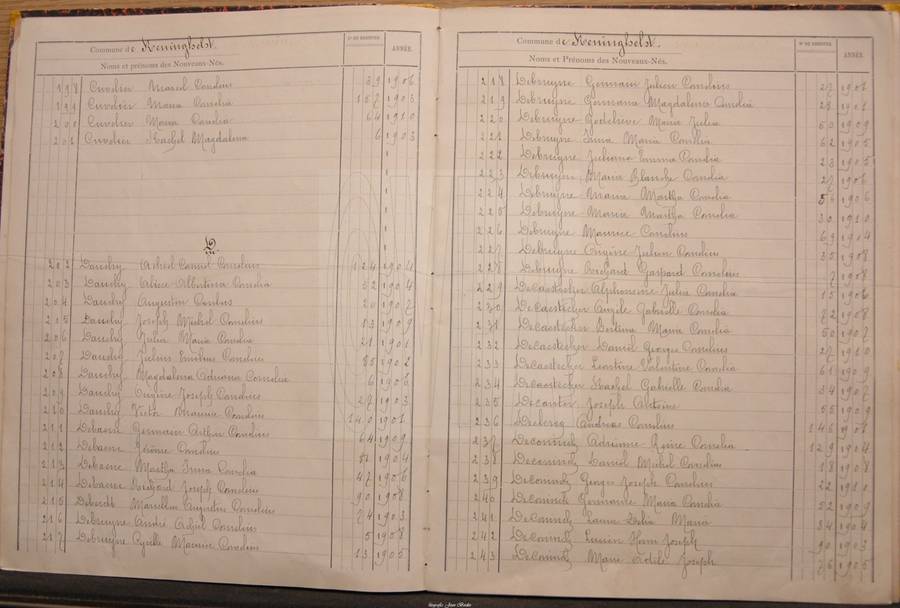 Commune de Reninghelst.
Noms et prénoms des Nouveaux-Nés.
N° DE REGISTRE
ANNÉE.
198 Cuvelier Marcel Cornelius 39 1906
199 Cuvelier Maria Cornelia 157 1903
200 Cuvelier Maria Cornelia 64 1910
201 Cuvelier Rachel Magdalena 6 1903
D
202 Dauchy Achiel Daniel Cornelius 124 1904
203 Dauchy Alice Albertina Cornelia 32 1904
204 Dauchy Augustin Cornelius 20 1907
205 Dauchy Joseph Michel Cornelius 13 1909
206 Dauchy Julia Maria Cornelia 21 1901
207 Dauchy Julien Emilius Cornelius 85 1902
208 Dauchy Magdalena Adriana Cornelia 6 1906
209 Dauchy Omjine Joseph Cornelius 27 1903
210 Dauchy Victor Maurice Cornelius 140 1901
211 Debaene Germain Arthur Cornelius 64 1909
212 Debaene Jérôme Cornelius 1904
213 Debaene Martha Irma Cornelia 47 1906
214 Debaene Richard Joseph Cornelius 90 1908
215 Marcellin Augustin Cornelius 74 1903
216 Debruyne André Achiel Cornelius 5 1908
217 Debruyne Cyrille Maurice Cornelius 13 1905
Commune de Reninghelst.
Noms et Prénoms des Nouveaux-Nés.
N° DE REGISTRE
ANNÉE.
218 Debruyne Germain Julien Cornelius 27 1901
219 Debruyne Germana Magdalena Cornelia 28 1901
220 Debruyne Godelieve Maria Julia 50 1909
221 Debruyne Irma Maria Cornelia 62 1905
222 Debruyne Juliana Emma Cornelia 23 1905
223 Debruyne Maria Blanche Cornelia 27 1906
224 Debruyne Maria Martha Cornelia 56 1906
225 Debruyne Maria Martha Cornelia 30 1910
226 Debruyne Maurice Cornelius 69 1904
227 Debruyne Omjine Julien Cornelius 35 1908
228 Debruyne Richard Gaspard Cornelius 7 1908
229 Decaestecker Alphonsine Julia Cornelia 15 1906
230 Decaestecker Angèle Gabrielle Cornelia 72 1908
231 Decaestecker Bertina Maria Cornelia 50 1907
232 Decaestecker Daniel Georges Cornelius 27 1910
233 Decaestecker Leontine Valentine Cornelia 61 1909
234 Decaestecker Rachel Gabrielle Cornelia 34 1907
235 Decanter Joseph Antoine 55 1909
236 Declercq Andreas Cornelius 146 1901
237 Deconinck Adrienne Reine Cornelia 129 1904
238 Deconinck Daniel Michel Cornelius 18 1908
239 Deconinck Georges Joseph Cornelius 22 1910
240 Deconinck Germaine Maria Cornelia 52 1909
241 Deconinck Laura Delia Maria 34 1904
242 Deconinck Lucien Henri Joseph 90 1903
243 Deconinck Marie Joseph 76 1905